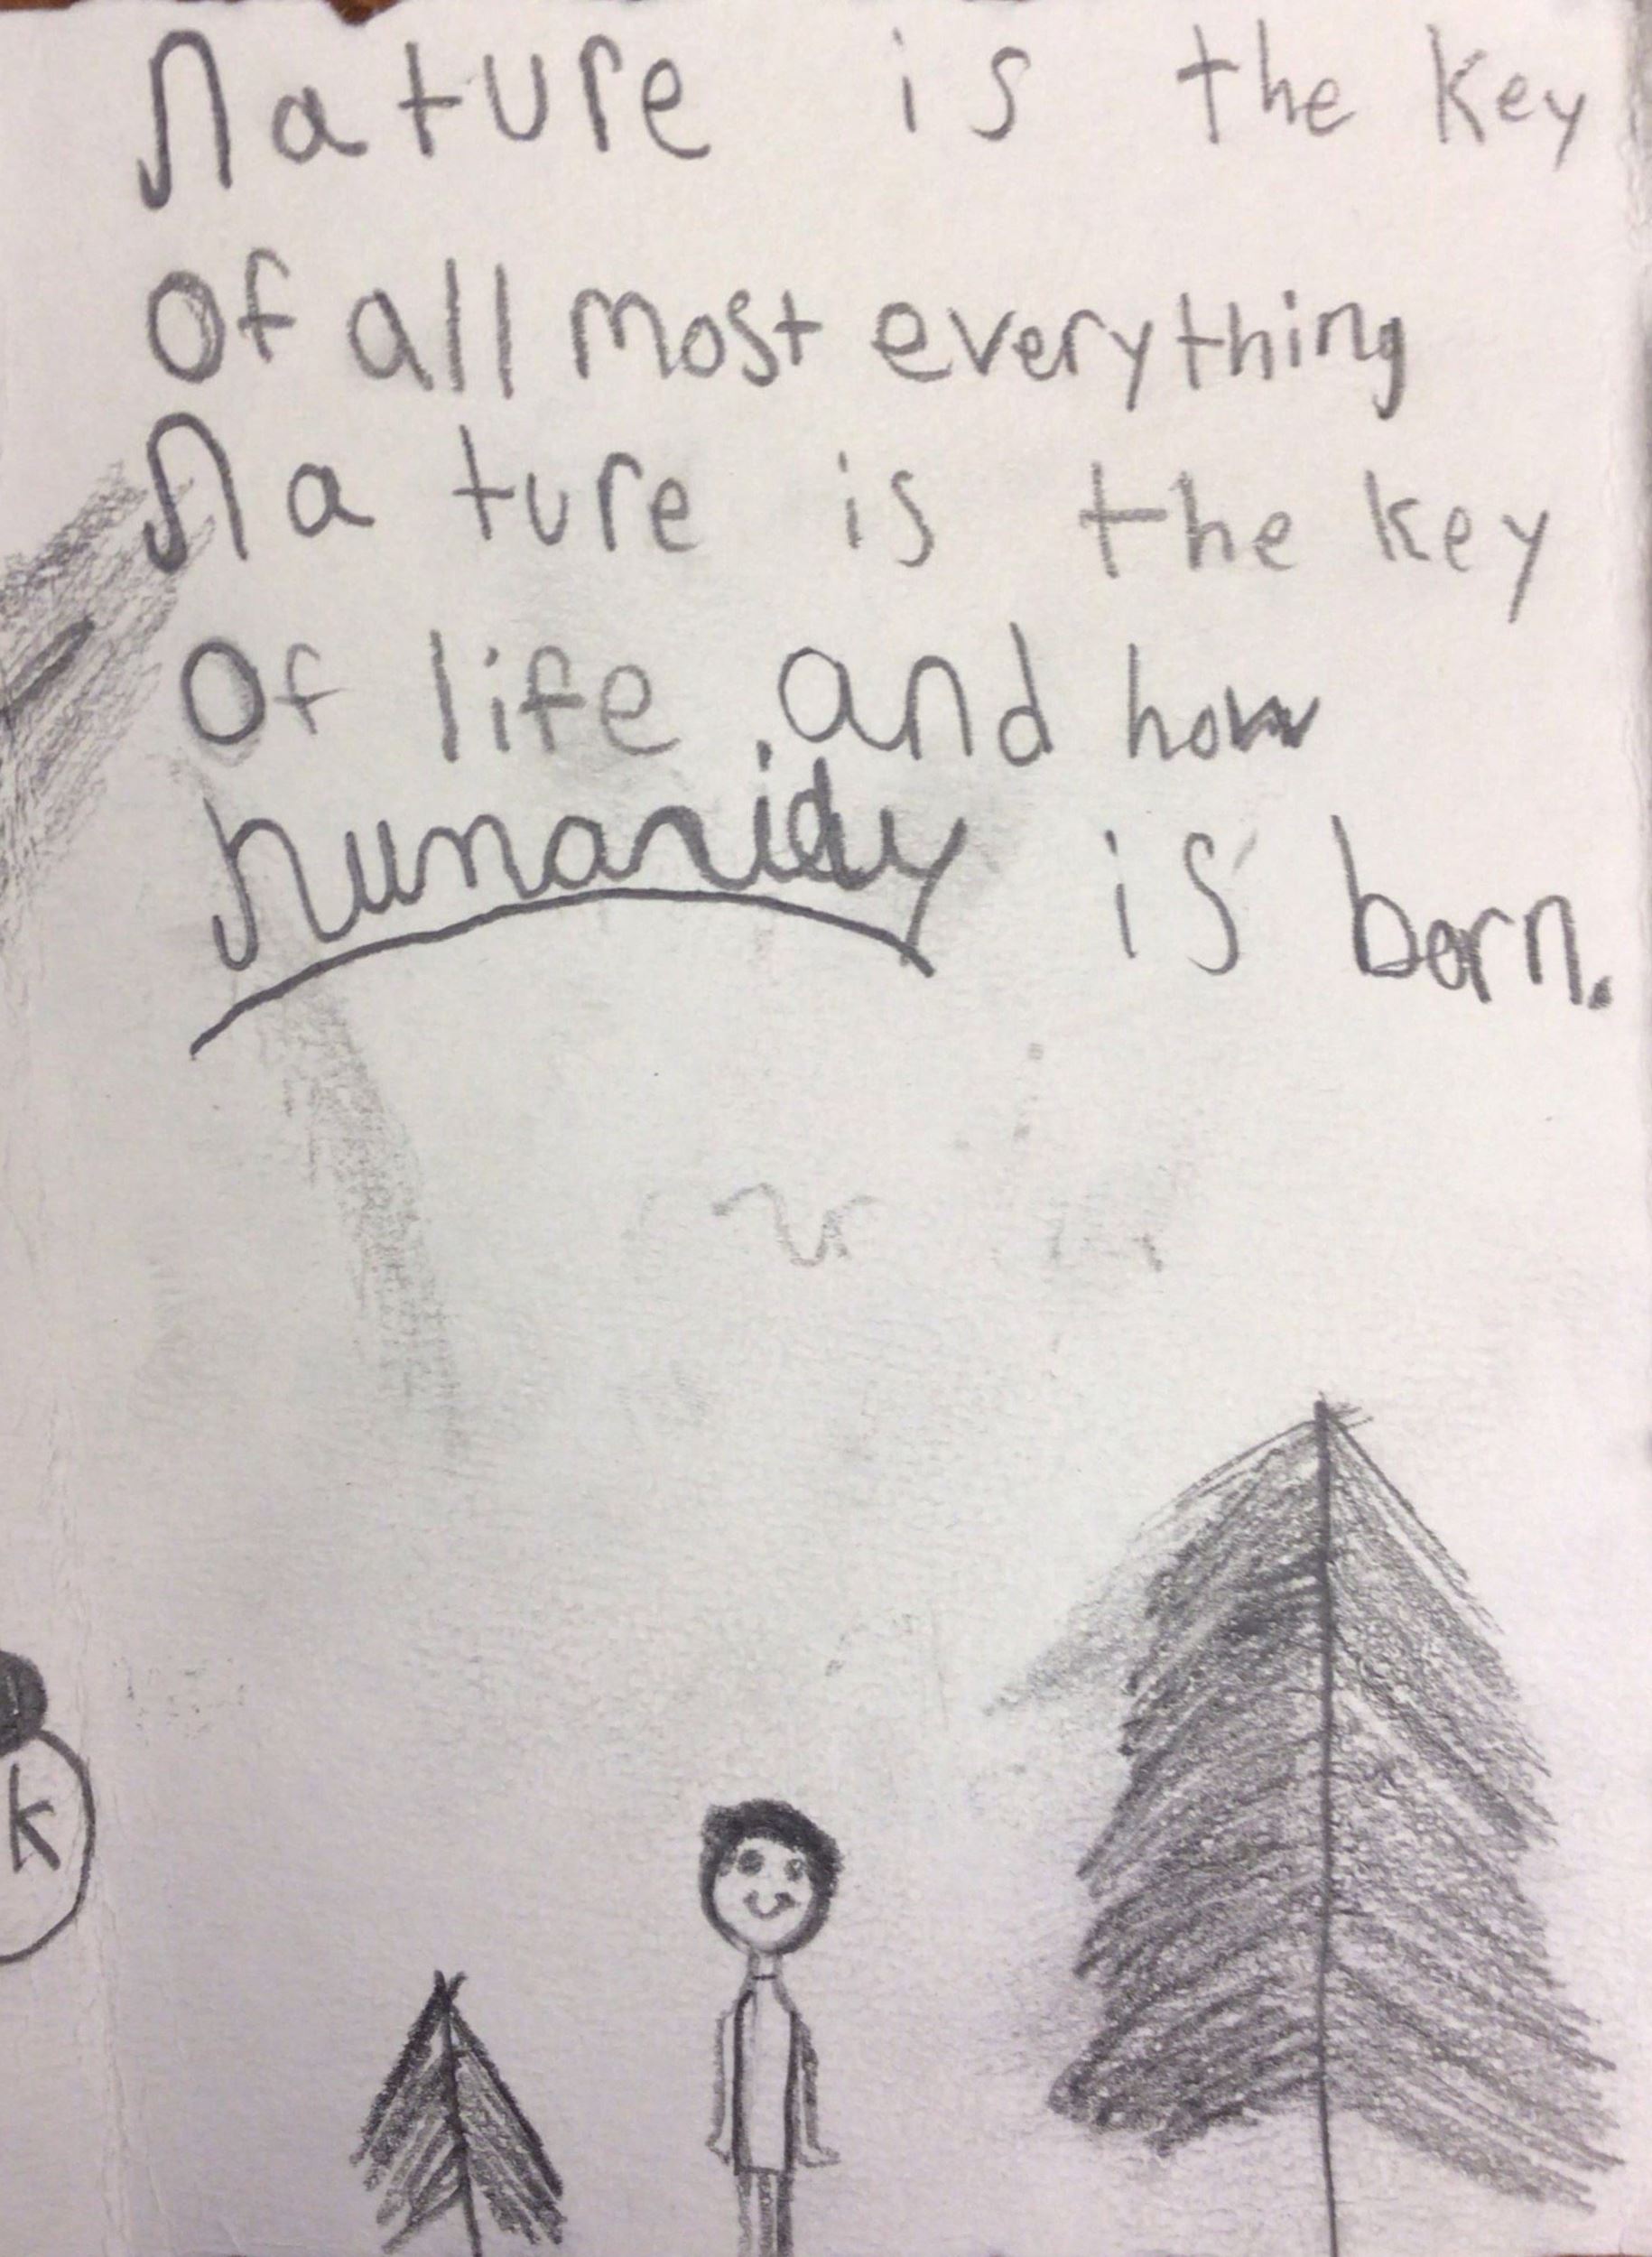 Nature is the key
Of all most everything
Nature is the key
Of life and how
humanidy is born.
k